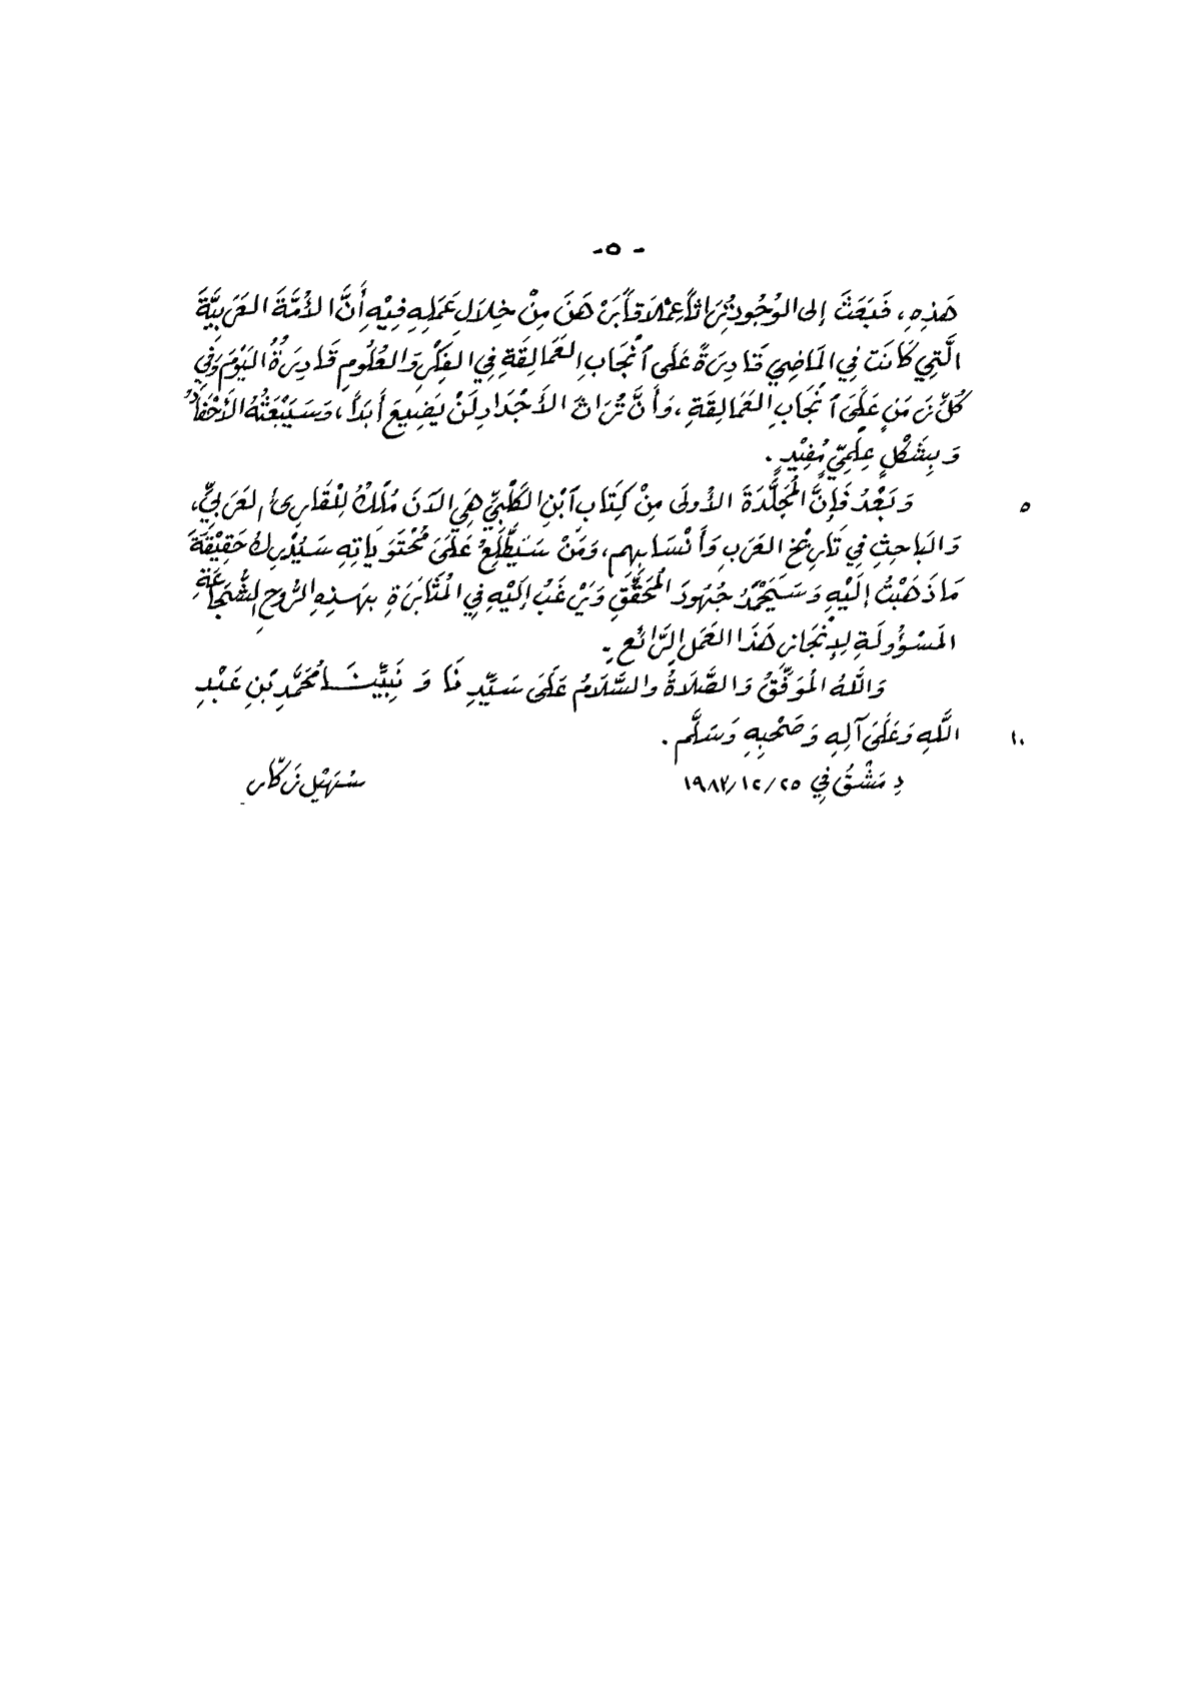 - ٥ -
هَذِهِ، فَبَعَثَ إلى الوُجُودِ تُرَاثاً عِمْلَاقاً بَرْهَنَ مِنْ خِلَالِ عَمَلِهِ فِيْهِ أَنَّ الأُمَّةَ العَرَبِيَّةَ
الَّتِي كَانَت فِي المَاضِي قَادِرَةً عَلَى ٱنْجَابِ العَمَالِقَةِ فِي الفِكْرِ وَالعُلُومِ قَادِرَةٌ اليَوْمَ وَفِي
كُلِّ زَمَنٍ عَلَى ٱنْجَابِ العَمَالِقَةِ، وَأَنَّ تُرَاثَ الأَجْدَادِ لَنْ يَضِيعَ أَبَداً، وَسَيَبْعَثُهُ الأَحْفَادُ
وَبِشَكْلٍ عِلْمِيٍّ مُفِيْدٍ.
٥ وَبَعْدُ فَإِنَّ المُجَلَّدَةَ الأُولَى مِنْ كِتَابِ ٱبْنِ الكَلْبِيِّ هِيَ الآنَ مُلْكٌ لِلْقَارِئِ العَرَبِيِّ،
وَالبَاحِثِ فِي تَارِيْخِ العَرَبِ وَأَنْسَابِهِم، وَمَنْ سَيَطَّلِعُ عَلَى مُحْتَوَيَاتِهِ سَيُدْرِكُ حَقِيْقَةَ
مَا ذَهَبْتُ إلَيْهِ وَسَيَحْمَدُ جُهُودَ المُحَقِّقِ وَيَرْغَبُ إلَيْهِ فِي المُثَابَرَةِ بِهَذِهِ الرُّوحِ الشُّجَاعَةِ
المَسْؤُولَةِ لِإنْجَازِ هَذَا العَمَلِ الرَّائِعِ.
وَاللَّهُ المُوَفِّقُ وَالصَّلَاةُ والسَّلَامُ عَلَى سَيِّدِنَا وَنَبِيِّنَا مُحَمَّدِ بْنِ عَبْدِ
١٠ اللَّهِ وَعَلَى آلِهِ وَصَحْبِهِ وَسَلَّم.
دِمَشْقُ فِي ٢٥/١٢/١٩٨٢ سُهَيْل زَكَّار